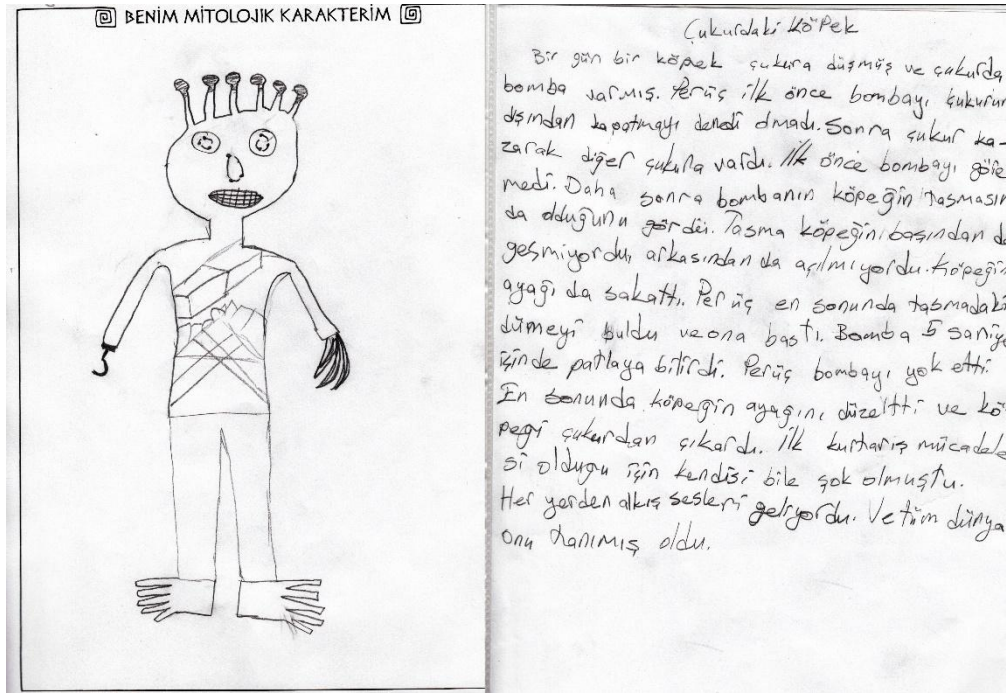 BENİM MİTOLOJİK KARAKTERİM
Çukurdaki Köpek
Bir gün bir köpek çukura düşmüş ve çukurda
bomba varmış. Perüç ilk önce bombayı çukurun
dışından kapatmayı denedi olmadı. Sonra çukur ka-
zarak diğer çukura vardı. İlk önce bombayı göre
medi. Daha sonra bombanın köpeğin tasmasın
da olduğunu gördü. Tasma köpeğin başından da
geşmiyordu, arkasından da açılmıyordu. Köpeğin
ayağı da sakattı. Perüç en sonunda tasmadaki
dümeyi buldu ve ona bastı. Bomba 5 saniye
içinde patlaya bilirdi. Perüç bombayı yok etti.
En sonunda köpeğin ayağını düzeltti ve kö
peği çukurdan çıkardı. İlk kurtarış mücadele
si olduğu için kendisi bile şok olmuştu.
Her yerden alkış sesleri geliyordu. Ve tüm dünya
onu tanımış oldu.